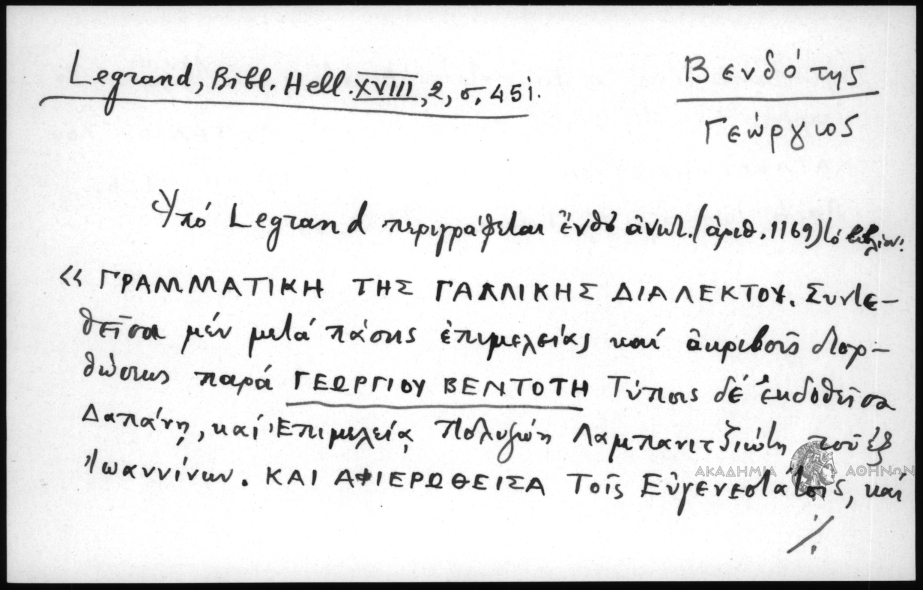 Legrand, Bibl. Hell. XVIII, 2, σ. 451.
Βενδότης
Γεώργιος
Ὑπό Legrand περιγράφεται ἔνθ' ἀνωτ. (ἀριθ. 1169) τό βιβλίον:
« ΓΡΑΜΜΑΤΙΚΗ ΤΗΣ ΓΑΛΛΙΚΗΣ ΔΙΑΛΕΚΤΟΥ. Συντε-
θεῖσα μέν μετά πάσης ἐπιμελείας καί ἀκριβοῦς διορ-
θώσεως παρά ΓΕΩΡΓΙΟΥ ΒΕΝΤΟΤΗ Τύποις δέ ἐκδοθεῖσα
Δαπάνῃ, καί Ἐπιμελείᾳ Πολυζώη Λαμπανιτζιώτη τοῦ ἐξ
Ἰωαννίνων. ΚΑΙ ΑΦΙΕΡΩΘΕΙΣΑ Τοῖς Εὐγενεστάτοις, καί
ΑΚΑΔΗΜΙΑ ΑΘΗΝΩΝ
./.